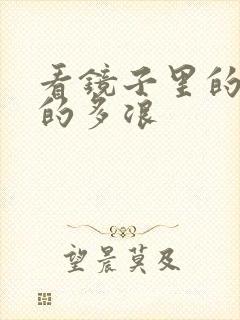 看镜子里的
的多浪
望晨莫及